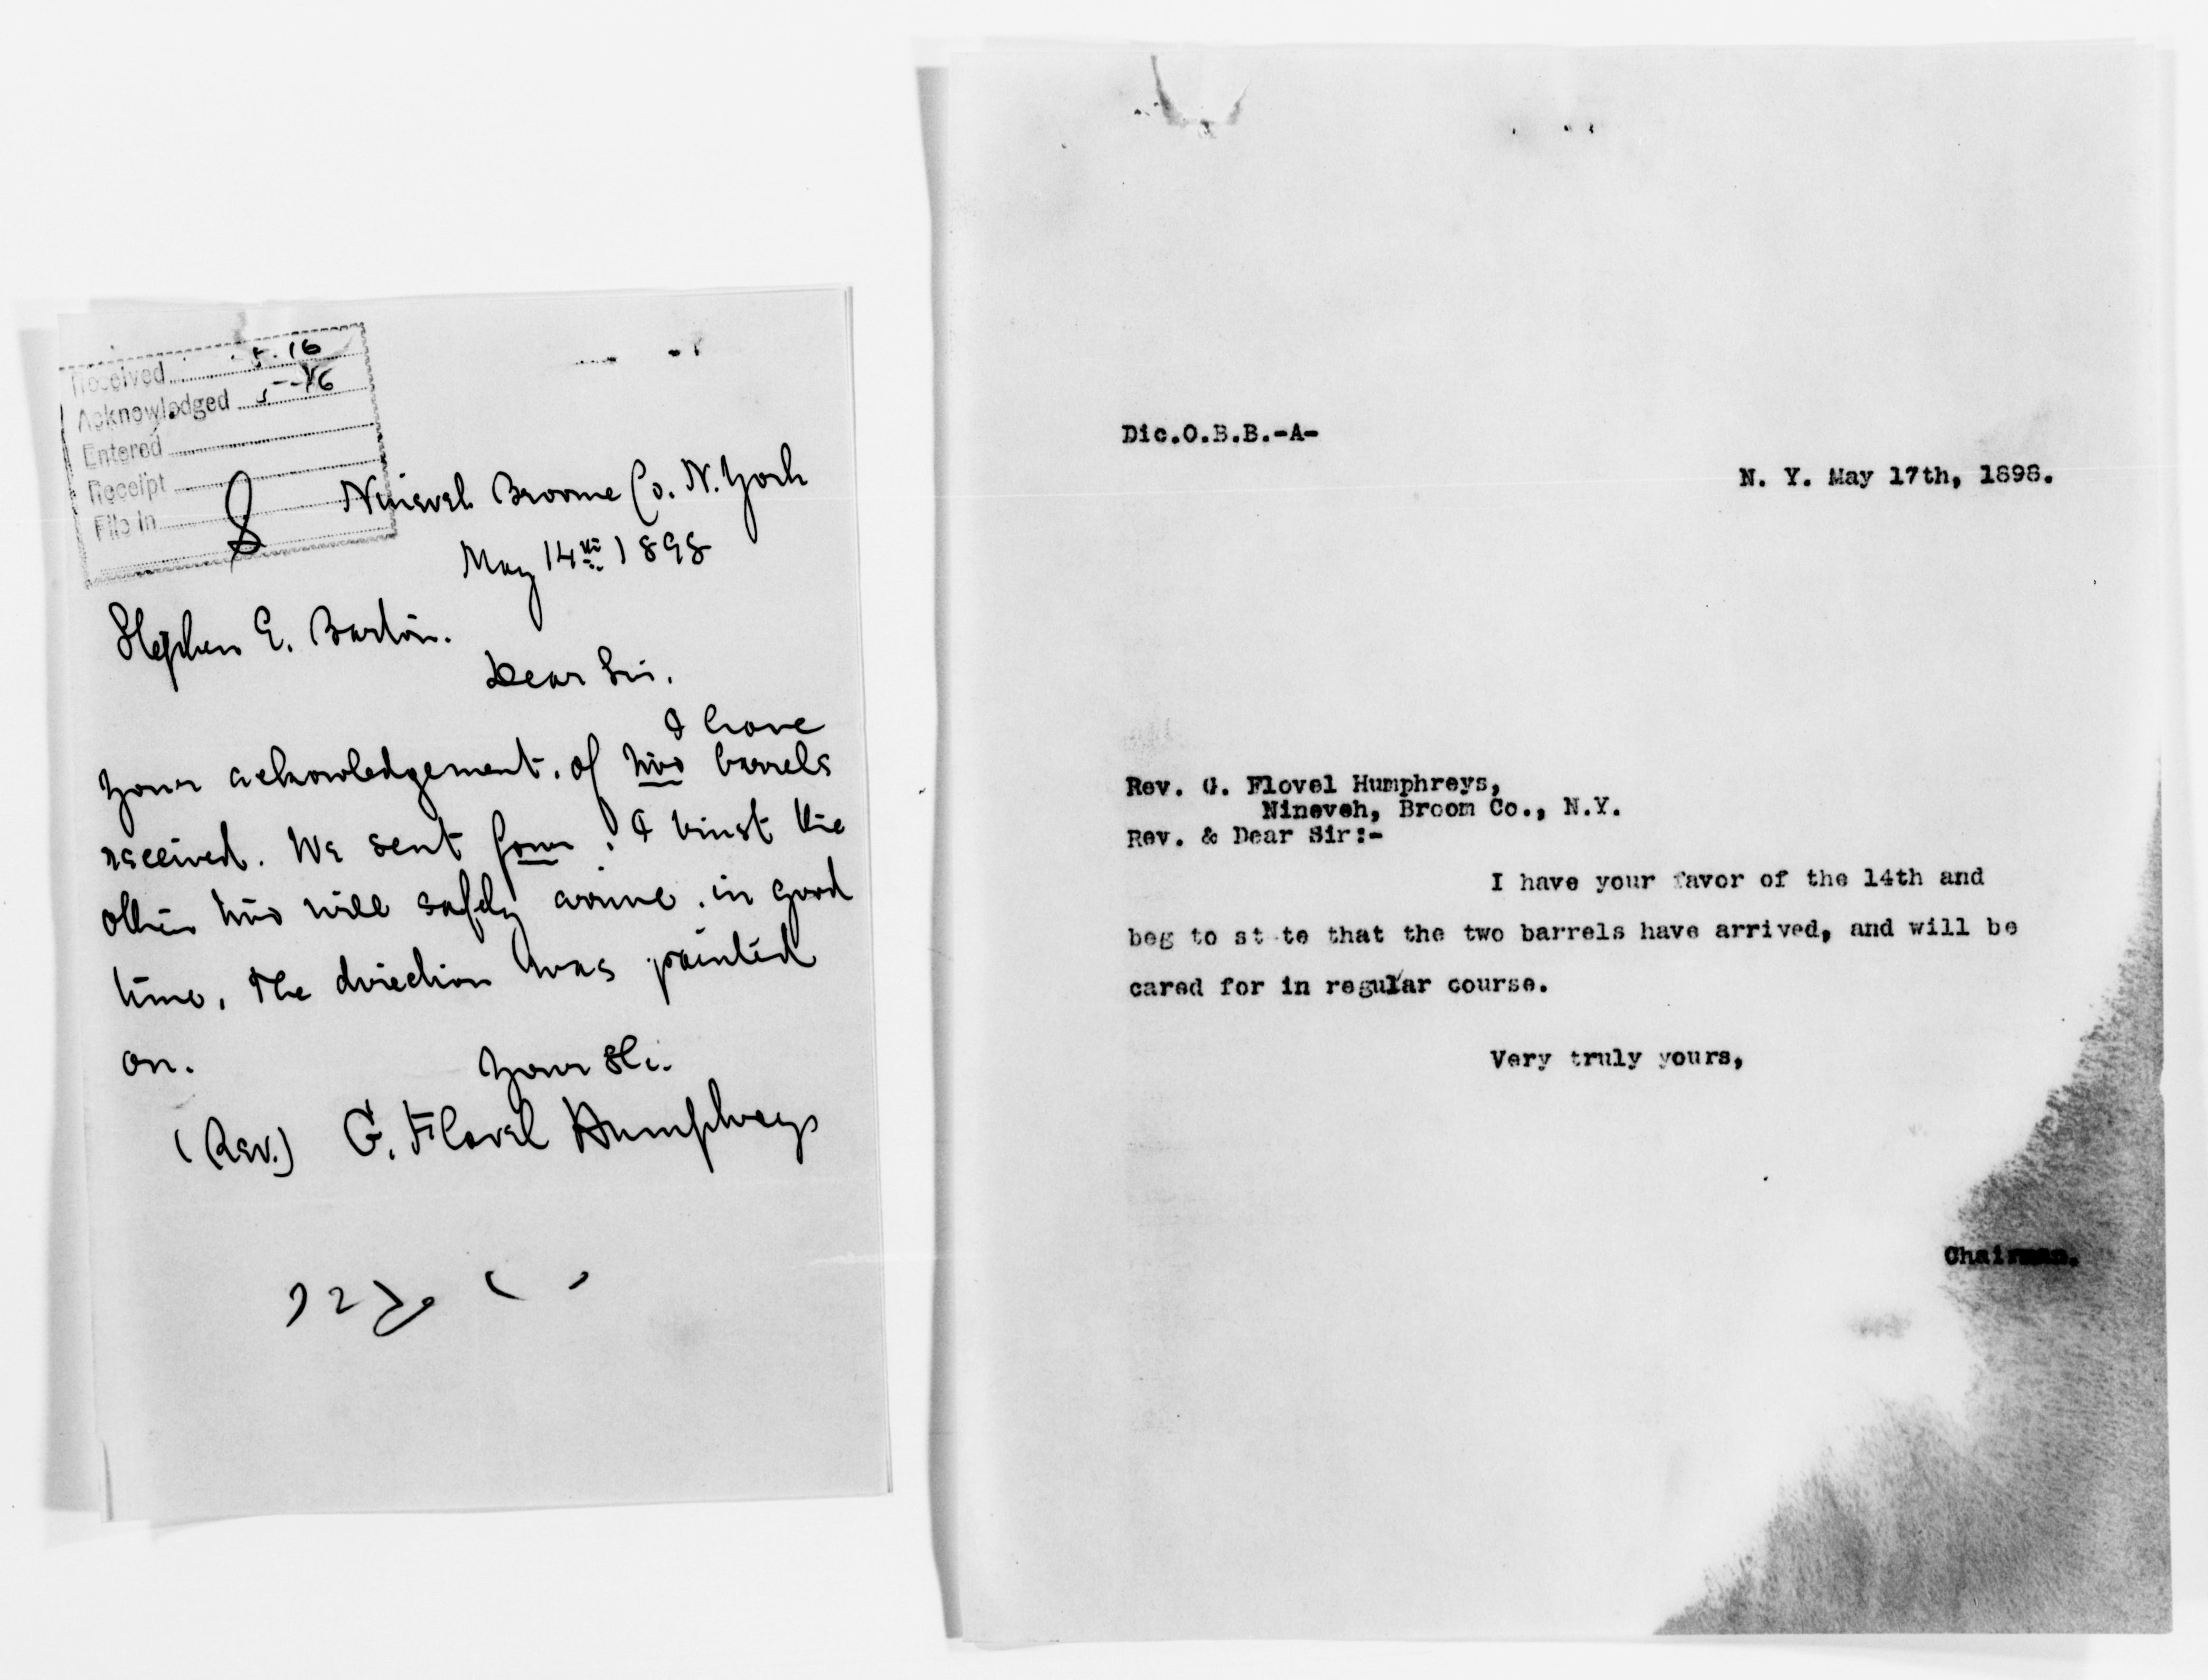 Received 5-16
Acknowledged 5-16
Entered
Receipt
File in
Nineveh Broome Co. N. York
May 14th 1898
Stephen E. Barton.
Dear Sir.
I have
your acknowledgement. of two barrels
received. We sent four. I trust the
other two will safely arrive. in good
time. The direction was painted
on.
Yours &c.
(Rev.) G. Flovel Humphreys
Dic.O.B.B.-A-
N. Y. May 17th, 1898.
Rev. G. Flovel Humphreys,
Nineveh, Broom Co., N.Y.
Rev. & Dear Sir:-
I have your favor of the 14th and
beg to st te that the two barrels have arrived, and will be
cared for in regular course.
Very truly yours,
Chairman.